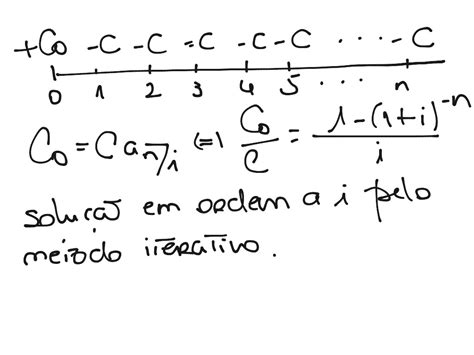 +Co -C -C =C -C -C ... -C
0 1 2 3 4 5 ... n
Co = C a n⌉i (=) Co/C = (1-(1+i)^-n)/i
solução em ordem a i pelo
método iterativo.